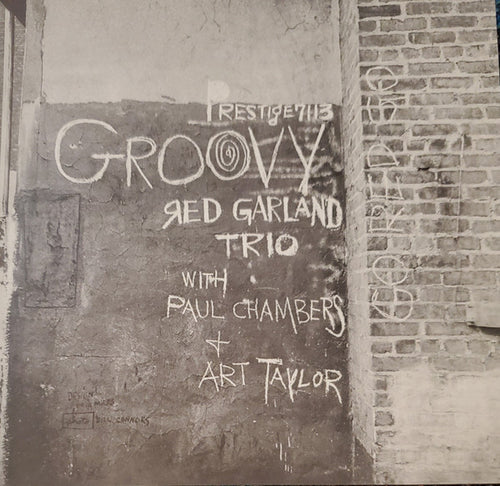 PRESTIGE 7113
GROOVY
RED GARLAND
TRIO
WITH
PAUL CHAMBERS
+
ART TAYLOR
photo BILL CONNORS